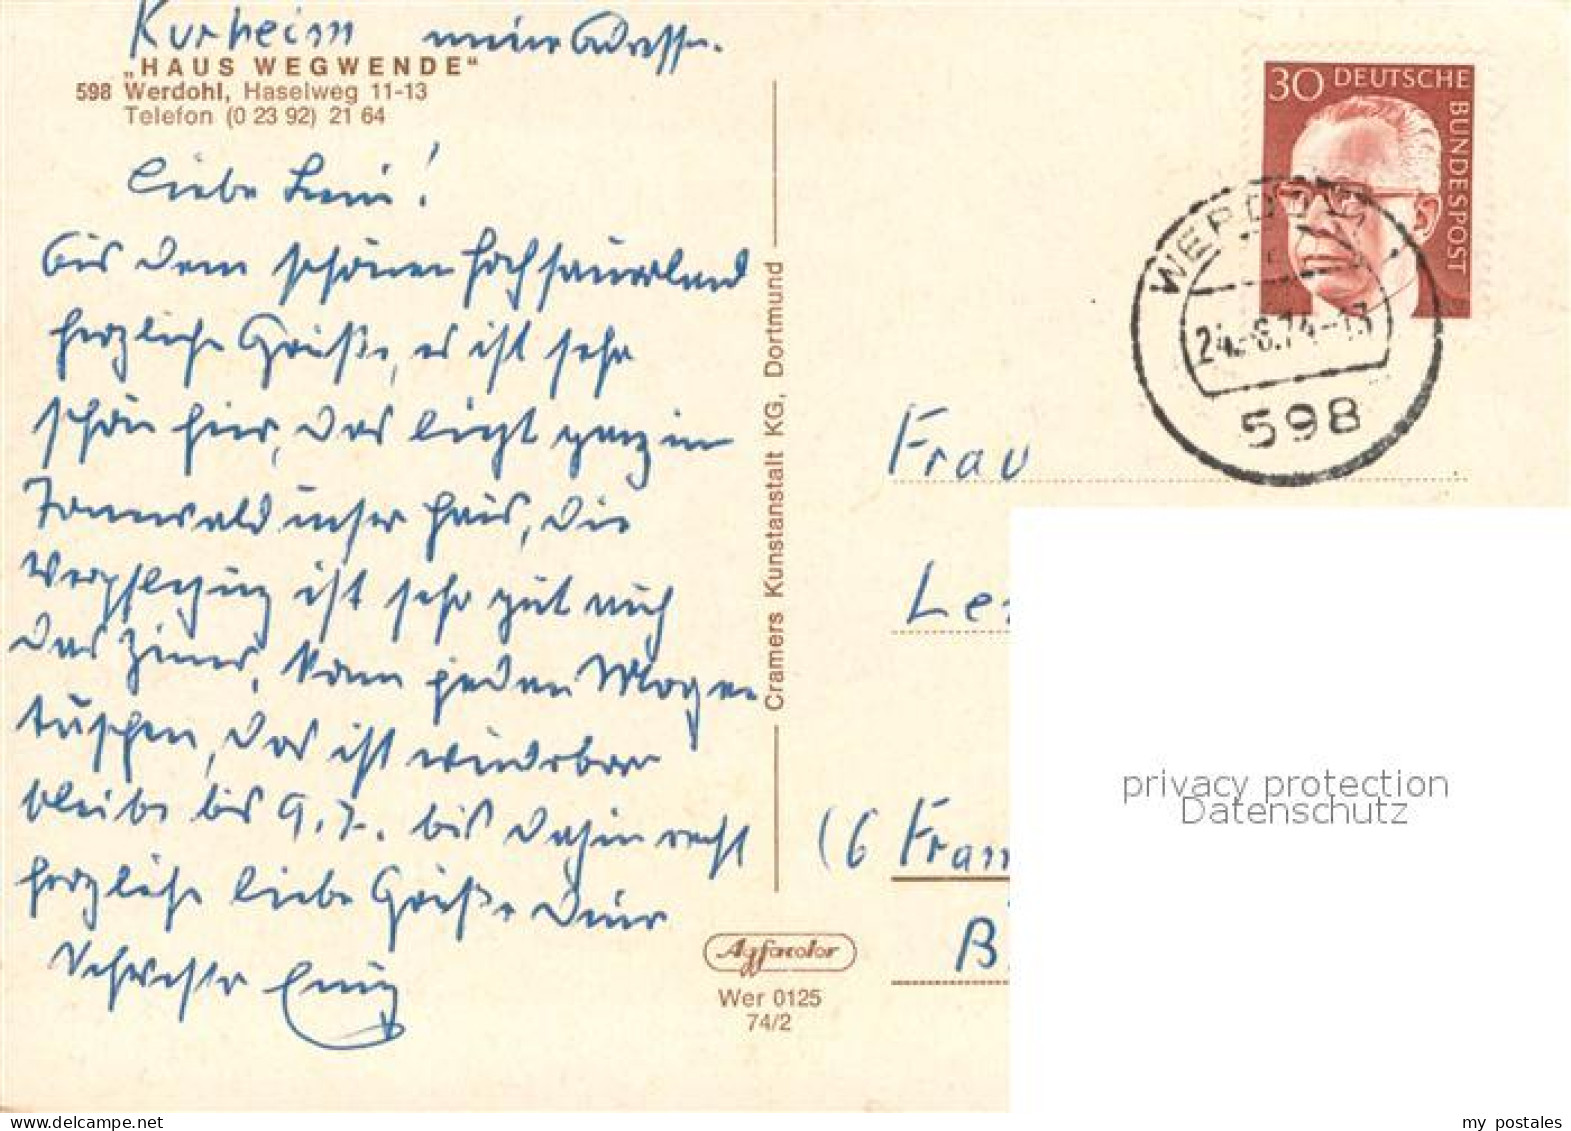 Kurheim meine Adresse.
„HAUS WEGWENDE“
598 Werdohl, Haselweg 11-13
Telefon (0 23 92) 21 64
Liebe Leni!
Aus dem schönen Hochsauerland
herzliche Grüße, es ist sehr
schön hier, das liegt ganz im
Tannenwald unser Haus, die
Verpflegung ist sehr gut auch
das Zimer, kann jeden Morgen
tuschen, das ist wunderbar
bleibe bis 9.7. bis dahin recht
herzliche liebe Grüße Deine
Schwester
Cramers Kunstanstalt KG, Dortmund
Agfacolor
Wer 0125
74/2
30 DEUTSCHE
BUNDESPOST
WERDOHL
24.-6.74-13
598
Frau
Le
(6 Fran
B
privacy protection
Datenschutz
my postales